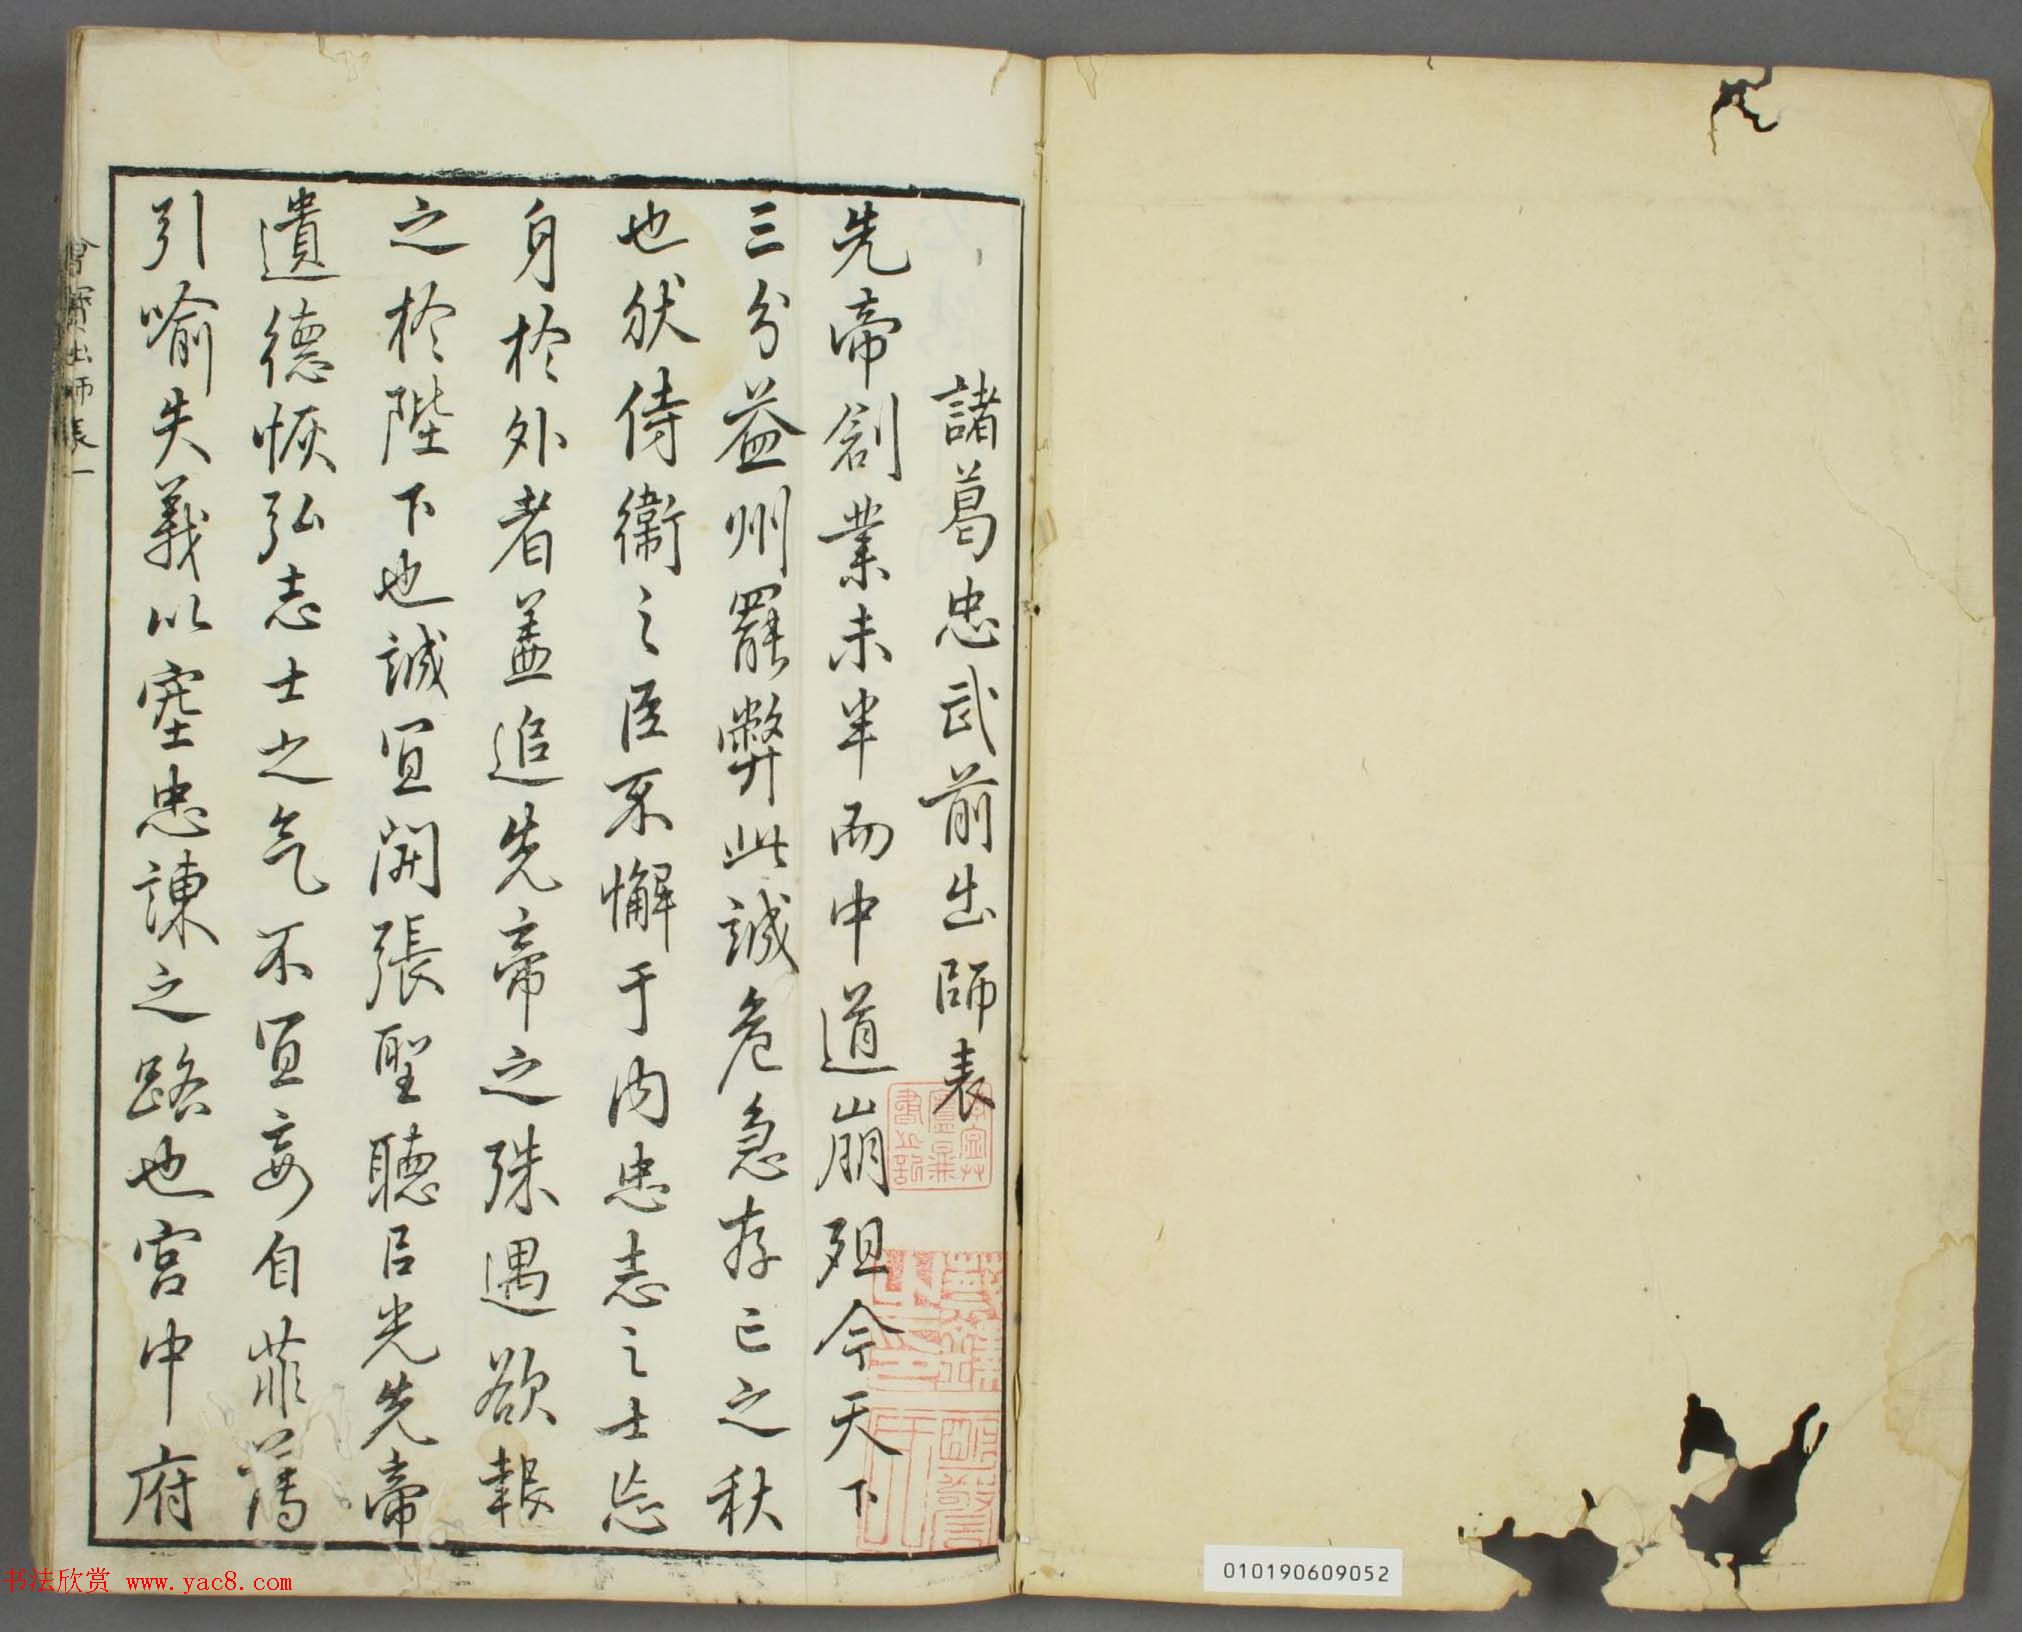 諸葛忠武前出師表
先帝創業未半而中道崩殂今天下
三分益州罷弊此誠危急存亡之秋
也然侍衛之臣不懈于內忠志之士忘
身於外者蓋追先帝之殊遇欲報
之於陛下也誠宜開張聖聽以光先帝
遺德恢弘志士之气不宜妄自菲薄
引喻失義以塞忠諫之路也宮中府
出師表一
010190609052
书法欣赏 www.yac8.com